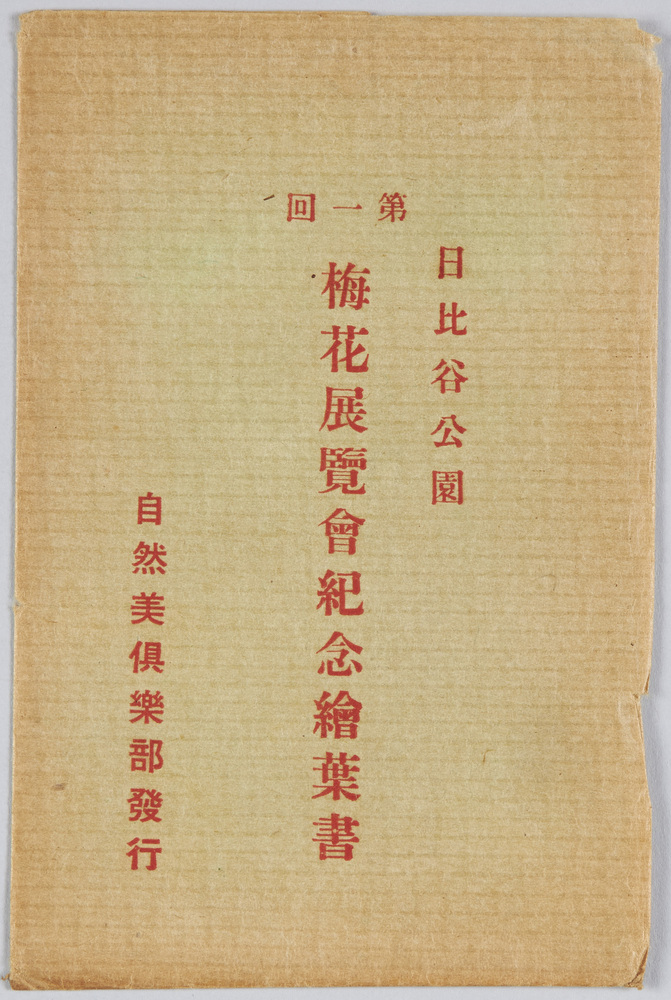 日比谷公園
第一回
梅花展覽會紀念繪葉書
自然美俱樂部發行